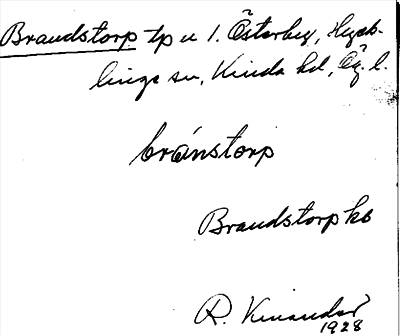 Brandstorp tp u 1. Österby, Hyck-
linge sn, Kinda hd, Ög. l.
bránstorp
Brandstorp kb
R. Kinander
1928